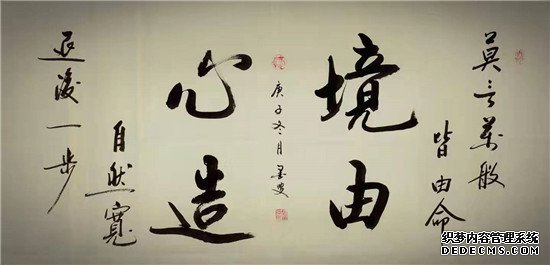 莫言萬般
皆由命
境由
心造
退後一步
自然寬
庚子冬月墨叟
织梦内容管理系统
DEDECMS.COM